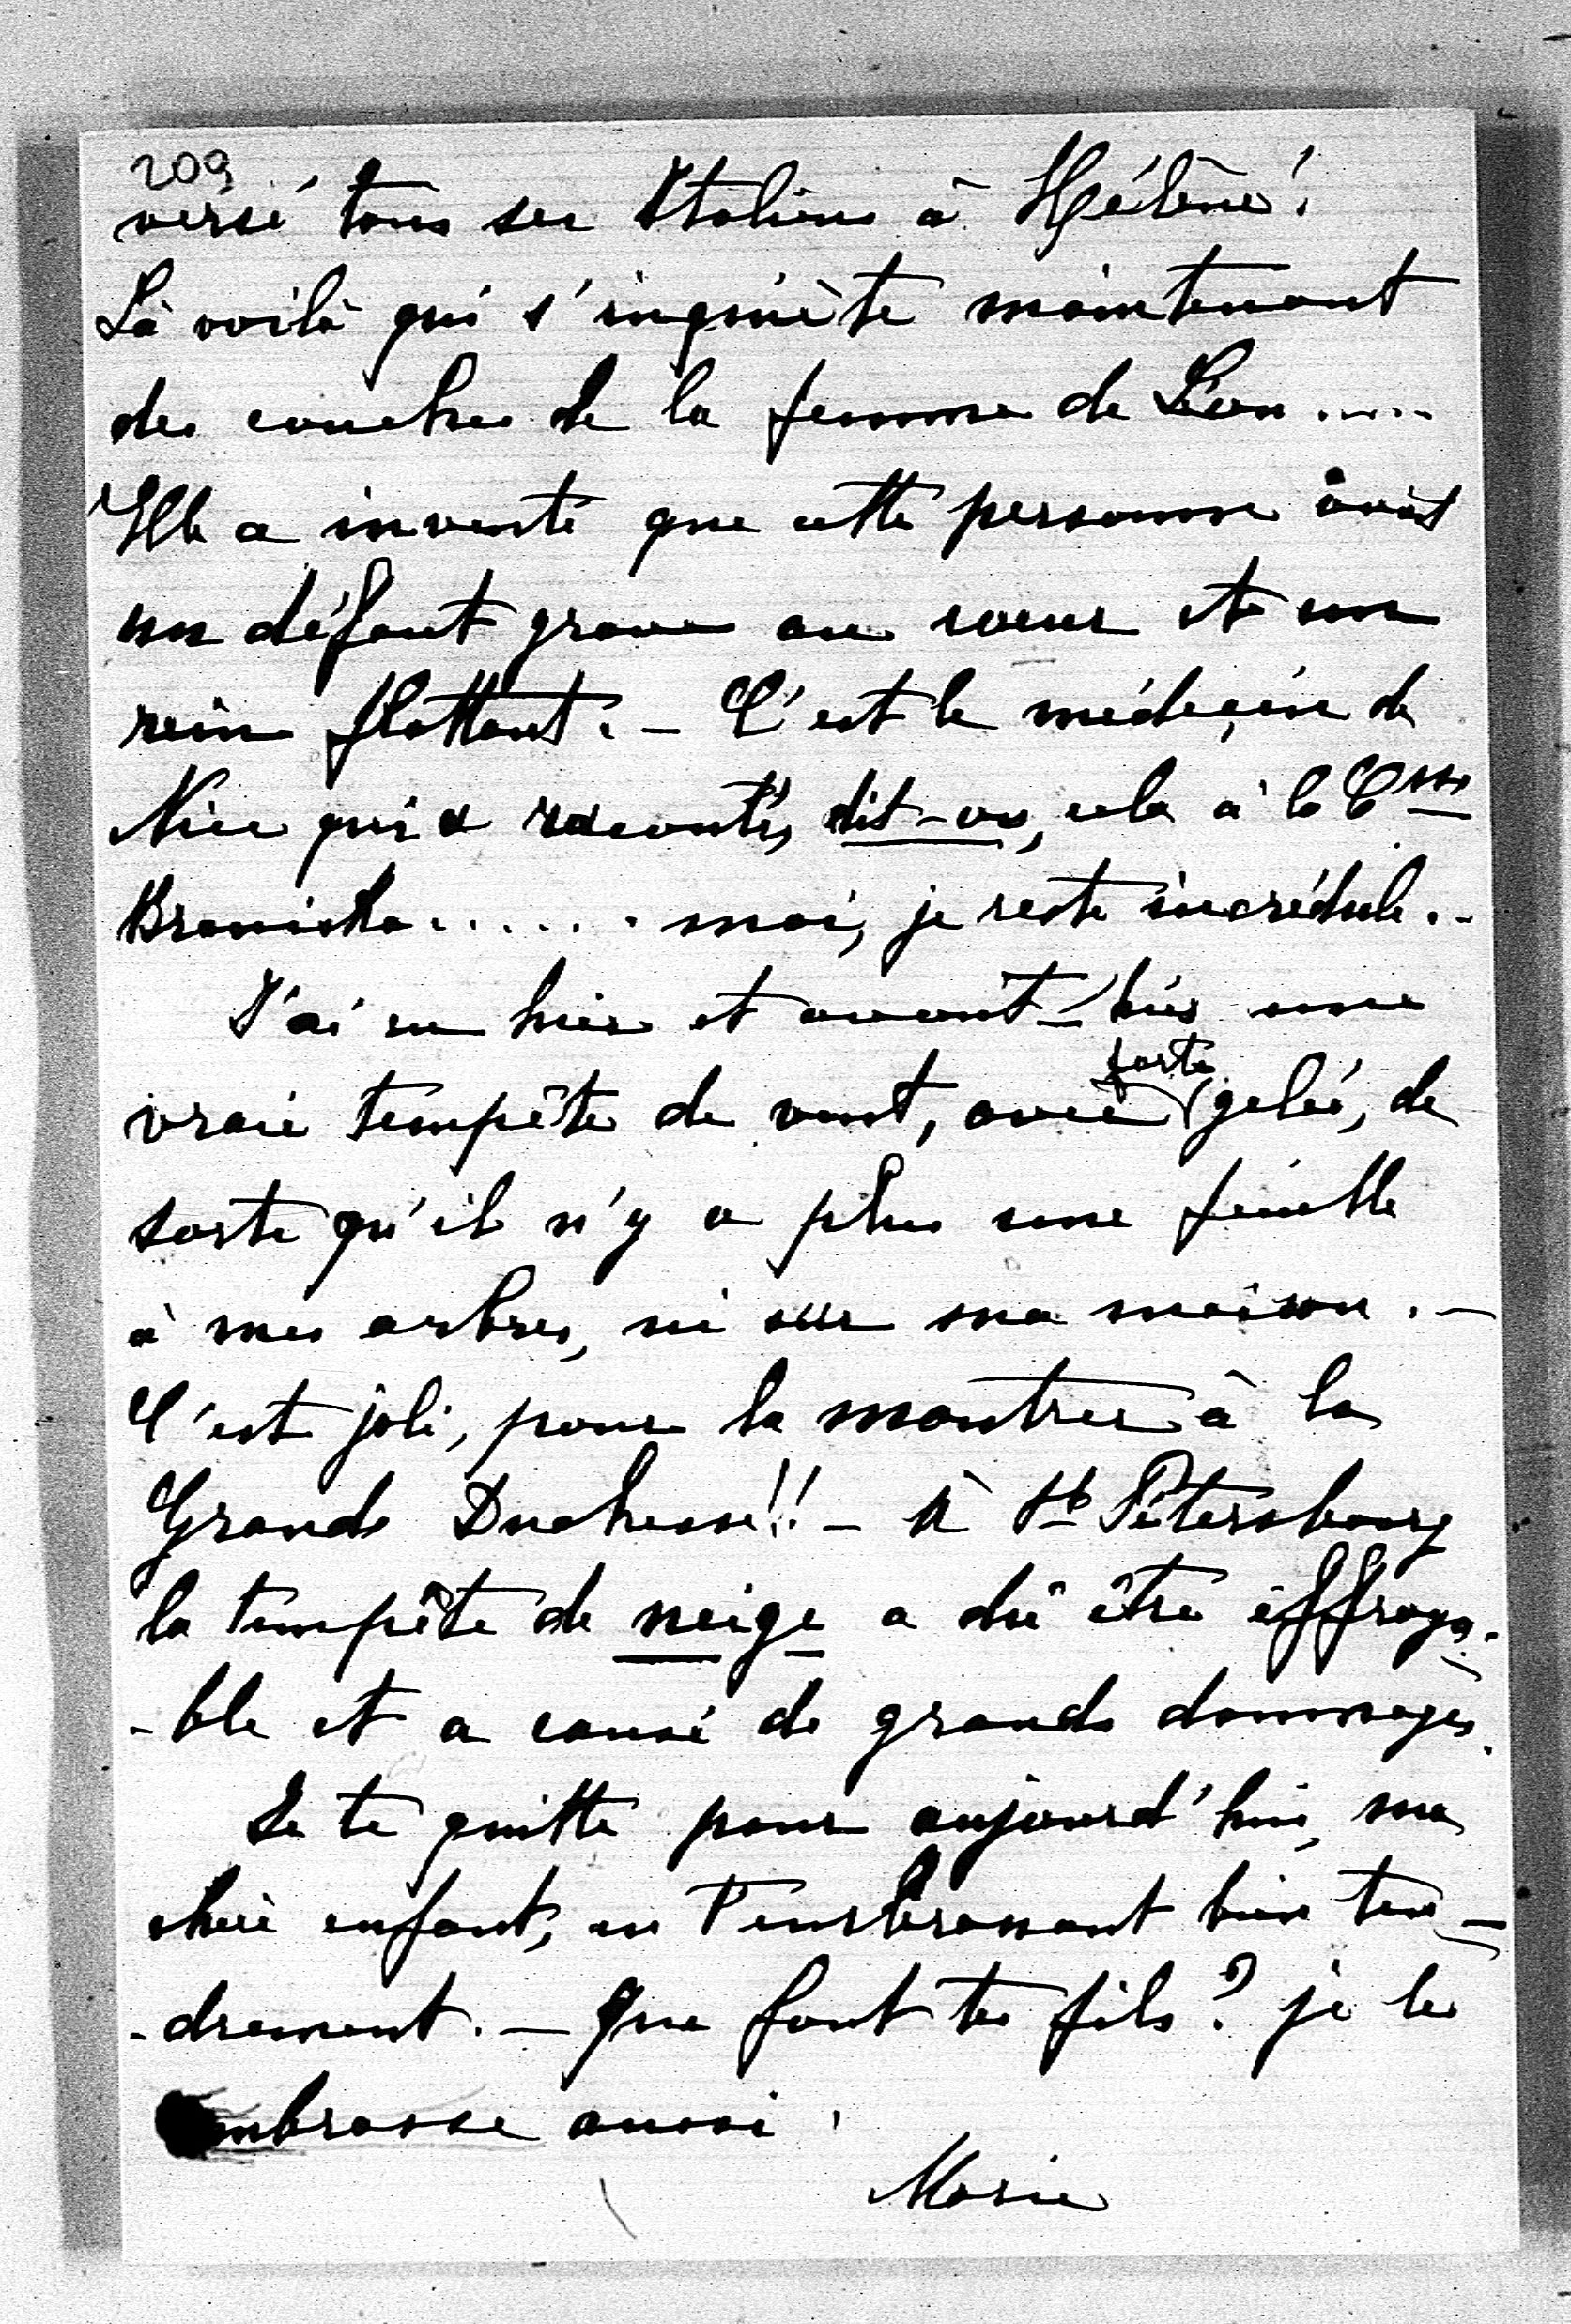 209
versé tous ses Italiens à Hélène!
La voilà qui s'inquiète maintenant
des couches de la femme de Léon.....
Elle a inventé que cette personne avait
un défaut grave au coeur et un
rein flottant. – C'est le médecin de
Nice qui a raconté, dit-on, cela à la Ctsse
Branicka...... moi, je reste incrédule. -
J'ai eu hier et avant-hier une
vraie tempête de vent, avec forte gelée, de
sorte qu'il n'y a plus une feuille
à mes arbres, ni sur ma maison. –
C'est joli, pour la montrer à la
Grande Duchesse!! – A St Pétersbourg
la tempête de neige a dû être effroya-
-ble et a causé de grands dommages.
Je te quitte pour aujourd'hui, ma
chère enfant, en t'embrassant bien ten-
-drement. – Que font tes fils? je les
embrasse aussi.
Marie